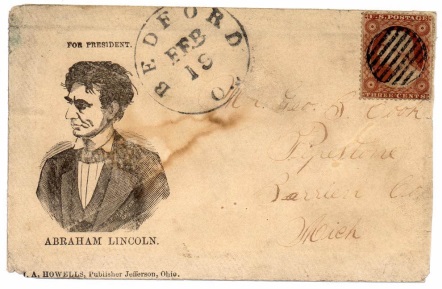 FOR PRESIDENT.
BEDFORD O.
FEB
18
U.S. POSTAGE
THREE CENTS
Geo. S. Cooke
Mich
ABRAHAM LINCOLN.
A. HOWELLS, Publisher Jefferson, Ohio.